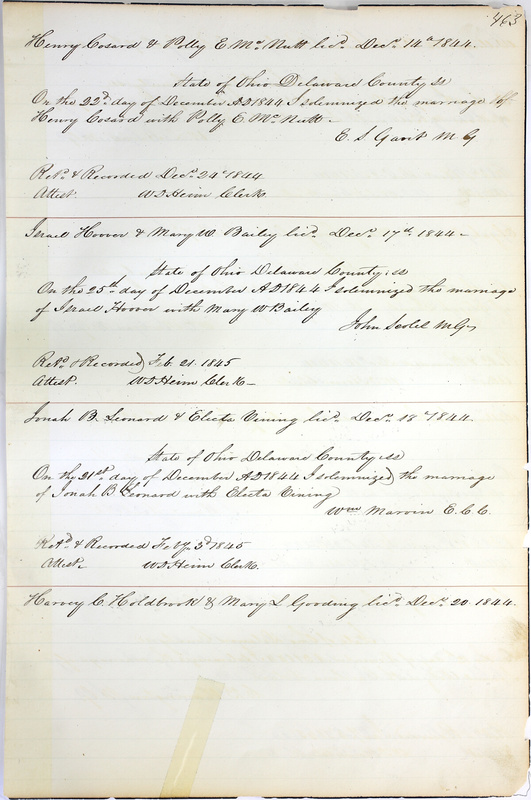 463
Henry Cosard & Polly E. Mc Nutt licd Decr 14th 1844.
State of Ohio Delaware County ss
On the 22d day of December AD 1844 I solemnized the marriage of
Henry Cosard with Polly E. Mc Nutt.
E. S. Gavit M G
Retd & Recorded Decr 24th 1844
Attest. W D Heim Clerk
Israel Hoover & Mary W. Bailey licd Decr 17th 1844.
State of Ohio Delaware County: ss
On the 25th day of December AD 1844 I solemnized the marriage
of Israel Hoover with Mary W Bailey
John M G
Retd & Recorded Feb. 21. 1845
Attest. W D Heim Clerk
Jonah B. Leonard & Electa Vining licd Decr 18th 1844.
State of Ohio Delaware County ss
On the 21st day of December AD 1844 I solemnized the marriage
of Jonah B Leonard with Electa Vining
Wm Marvin E. C. C.
Retd & Recorded Feby 3d 1845
Attest. W D Heim Clerk.
Harvey C. Holdbrook & Mary L Gooding licd Decr 20. 1844.